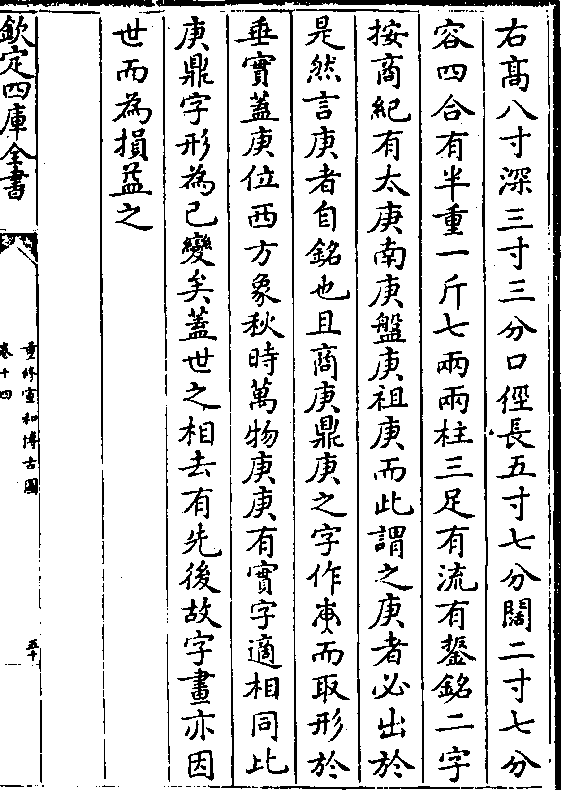 右髙八寸深三寸三分口徑長五寸七分闊二寸七分
容四合有半重一斤七兩兩柱三足有流有鋬銘二字
按商紀有太庚南庚盤庚祖庚而此謂之庚者必出於
是然言庚者自銘也且商庚鼎庚之字作而取形於
垂實蓋庚位西方象秋時萬物庚庚有實字適相同此
庚鼎字形為已變矣蓋世之相去有先後故字畫亦因
世而為損益之
欽定四庫全書
重修宣和博古圖
卷十四
五十